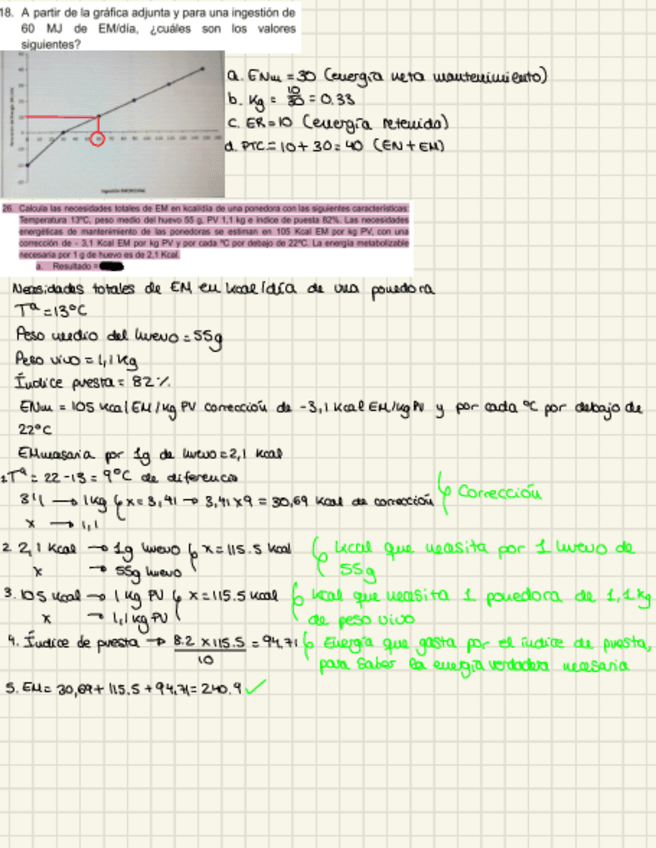 18. A partir de la gráfica adjunta y para una ingestión de
60 MJ de EM/día, ¿cuáles son los valores
siguientes?
a. ENm = 30 (energía neta mantenimiento)
b. Kg = 10/30 = 0.33
c. ER = 10 (energía retenida)
d. PTC = 10 + 30 = 40 (EN + EM)
26. Calcula las necesidades totales de EM en kcal/día de una ponedora con las siguientes características:
Temperatura 13ºC, peso medio del huevo 55 g, PV 1,1 kg e índice de puesta 82%. Las necesidades
energéticas de mantenimiento de las ponedoras se estiman en 105 Kcal EM por kg PV, con una
corrección de - 3,1 Kcal EM por kg PV y por cada ºC por debajo de 22ºC. La energía metabolizable
necesaria por 1 g de huevo es de 2,1 Kcal.
a. Resultado =
Necesidades totales de EM en kcal/día de una ponedora
Tª = 13ºC
Peso medio del huevo = 55g
Peso vivo = 1,1 kg
Índice puesta = 82%
ENm = 105 kcal EM/kg PV corrección de -3,1 kcal EM/kg PV y por cada ºC por debajo de
22ºC
EM necesaria por 1g de huevo = 2,1 kcal
1. Tª = 22 - 13 = 9ºC de diferencia
3'1 → 1kg x = 3,41 → 3,41 x 9 = 30,69 kcal de corrección Corrección
x → 1,1
2. 2,1 kcal → 1g huevo x = 115.5 kcal kcal que necesita por 1 huevo de
x → 55g huevo 55g
3. 105 kcal → 1 kg PV x = 115.5 kcal kcal que necesita 1 ponedora de 1,1 kg
x → 1,1 kg PV de peso vivo
4. Índice de puesta → 8.2 x 115.5 / 10 = 94,71 Energía que gasta por el índice de puesta,
para saber la energía verdadera necesaria
5. EM = 30,69 + 115.5 + 94.71 = 240.9 ✓